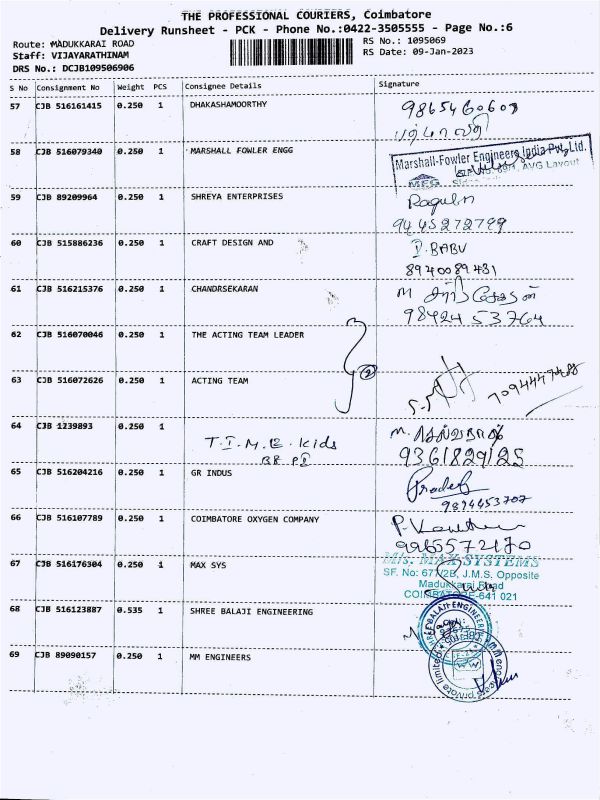 THE PROFESSIONAL COURIERS, Coimbatore
Delivery Runsheet - PCK - Phone No.:0422-3505555 - Page No.:6
Route: MADUKKARAI ROAD
RS No.: 1095069
Staff: VIJAYARATHINAM
RS Date: 09-Jan-2023
DRS No.: DCJB109506906
S No Consignment No Weight PCS Consignee Details Signature
57 CJB 516161415 0.250 1 DHAKASHAMOORTHY
58 CJB 516079340 0.250 1 MARSHALL FOWLER ENGG
Marshall-Fowler Engineers India Pvt. Ltd.
AVG Layout
MFG
59 CJB 89209964 0.250 1 SHREYA ENTERPRISES
9445272799
60 CJB 515886236 0.250 1 CRAFT DESIGN AND D. BABU
8940089431
61 CJB 516215376 0.250 1 CHANDRSEKARAN
9842453764
62 CJB 516070046 0.250 1 THE ACTING TEAM LEADER
2
63 CJB 516072626 0.250 1 ACTING TEAM 7094447488
64 CJB 1239893 0.250 1
T.I.M.E. Kids
9361829125
65 CJB 516204216 0.250 1 GR INDUS Pradeep
9894453707
66 CJB 516107789 0.250 1 COIMBATORE OXYGEN COMPANY
9965572170
67 CJB 516176304 0.250 1 MAX SYS M/s. MAX SYSTEMS
SF. No: 677/2B, J.M.S. Opposite
Madukkarai Road
COIMBATORE-641 021
68 CJB 516123887 0.535 1 SHREE BALAJI ENGINEERING
SHREE BALAJI ENGINEERING
69 CJB 89090157 0.250 1 MM ENGINEERS
MM engineers private limited